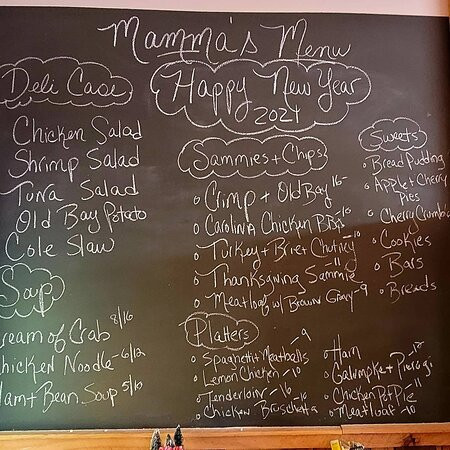 Mamma's Menu
Happy New Year
2024
Deli Case
Chicken Salad
Shrimp Salad
Tuna Salad
Old Bay Potato
Cole Slaw
Soup
ream of Crab 8/16
hicken Noodle - 6/12
Ham + Bean Soup 5/10
Sammies + Chips
Crimp + Old Bay 16-
Carolina Chicken BBQ -10
Turkey + Brie + Chutney -10
Thanksgiving Sammie -11
Meatloaf w/ Brown Gravy -9
Platters
Spaghetti + Meatballs -9
Lemon Chicken -10
Tenderloin -16
Chicken Bruschetta -10
Ham
Galumpke + Pierogi
Chicken Pot Pie 11
Meatloaf -10
Sweets
Bread Pudding
Apple + Cherry
Pies
Cherry Crumble
Cookies
Bars
Breads